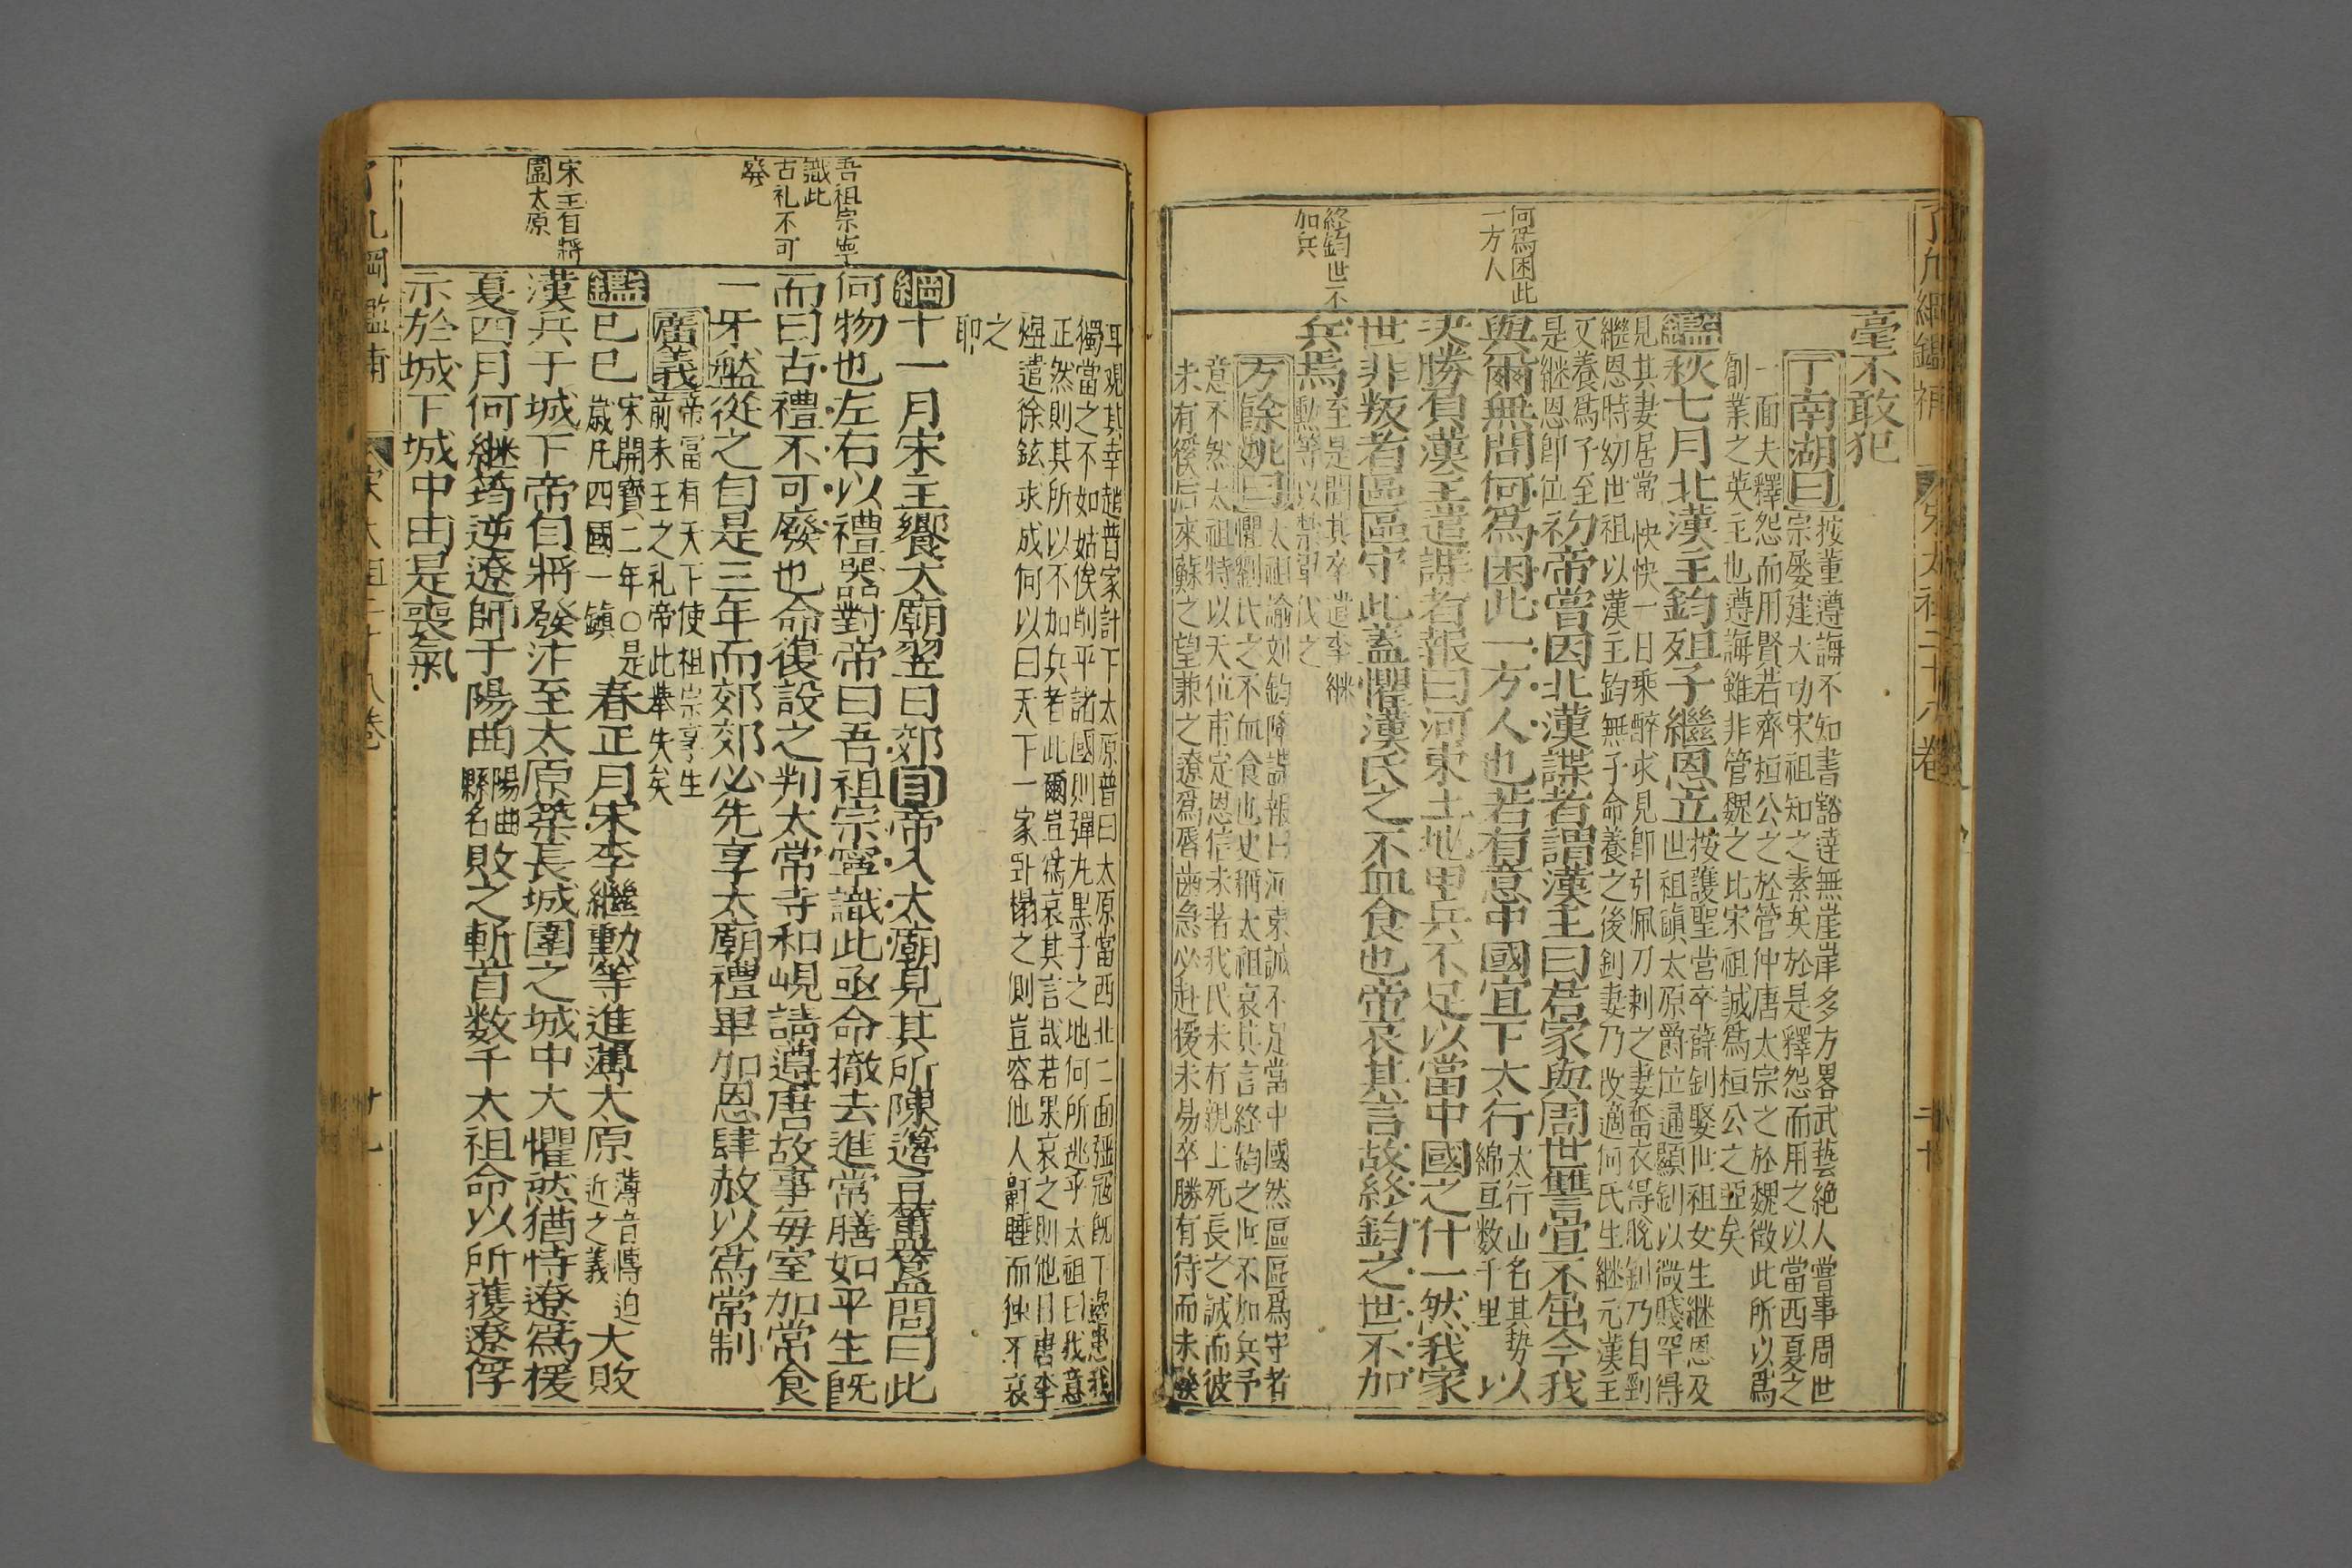 毫不敢犯
丁南湖曰按董遵誨不如書豁達無崖岸多方畧武藝絕人嘗事周世
宗屡建大功宋祖知之素矣於是釋怨而用之以當西夏之
一面夫釋怨而用賢若齊桓公之於管仲唐太宗之於魏徵此所以爲
創業之英主也遵誨雖非管魏之比宋祖誠爲桓公之亞矣
鑑秋七月北漢主鈞殂子繼恩立按護聖營卒薛釗娶世祖女生継恩及
世祖鎮太原爵位通顯釗以微賤罕得
見其妻居常怏怏一日乘醉求見卽引佩刀刺之妻奮衣得脫釗乃自剄
繼恩時幼世祖以漢主鈞無子命養之後釗妻乃改適何氏生継元漢主
又養爲子至
是継恩卽位初帝嘗因北漢諜者謂漢主曰君家與周世讐宜不屈今我
與爾無間何爲困此一方人也若有意中國宜下太行太行山名其勢
綿亘数千里以
决勝負漢主遣諜者報曰河東土地甲兵不足以當中國之什一然我家
世非叛者區區守此蓋懼漢氏之不血食也帝哀其言故終鈞之世不加
兵焉至是聞其卒遣李継
勳等以禁軍伐之
方餘姚曰太祖諭刘鈞降諜報曰河東誠不足當中國然區區爲守者
懼劉氏之不血食也史稱太祖哀其言終鈞之世不加兵予
意不然太祖特以天位甫定恩信未著我民未有親上死長之誠而彼
未有後后來蘇之望兼之遼爲唇齒急必赴援未易卒勝有待而未發
何爲困此
一方人
終鈞世不
加兵
了凡綱鑑補
宋太祖二十八卷
二十
耳觀其幸趙普家計下太原普曰太原當西北二面彊寇旣下邊患我
獨當之不如姑俟削平諸國則彈丸黒子之地何所逃乎太祖曰我意
正然則其所以不加兵者此爾豈爲哀其言哉若果哀之則他日唐李
煜遣徐鉉求成何以曰天下一家卧榻之側豈容他人鼾睡而独不哀
之
耶
綱十一月宋主饗太廟翌日郊目帝入太廟見其所陳籩豆簠簋問曰此
何物也左右以禮器對帝曰吾祖宗寧識此亟命撤去進常膳如平生旣
而曰古禮不可廢也命復設之判太常寺和峴請遵唐故事每室加常食
一牙盤從之自是三年而郊郊必先享太廟禮畢加恩肆赦以爲常制
廣義帝富有天下使祖宗享生
前未王之礼帝此舉失矣
鑑己巳宋開寶二年○是
歲凡四國一鎮春正月宋李繼勳等進薄太原薄音愽迫
近之義大敗
漢兵于城下帝自將發汴至太原築長城圍之城中大懼然猶恃遼爲援
夏四月何継筠逆遼師于陽曲陽曲
縣名敗之斬首数千太祖命以所獲遼俘
示於城下城中由是喪氣
吾祖宗寧
識此
古礼不可
廢
宋主自將
圍太原